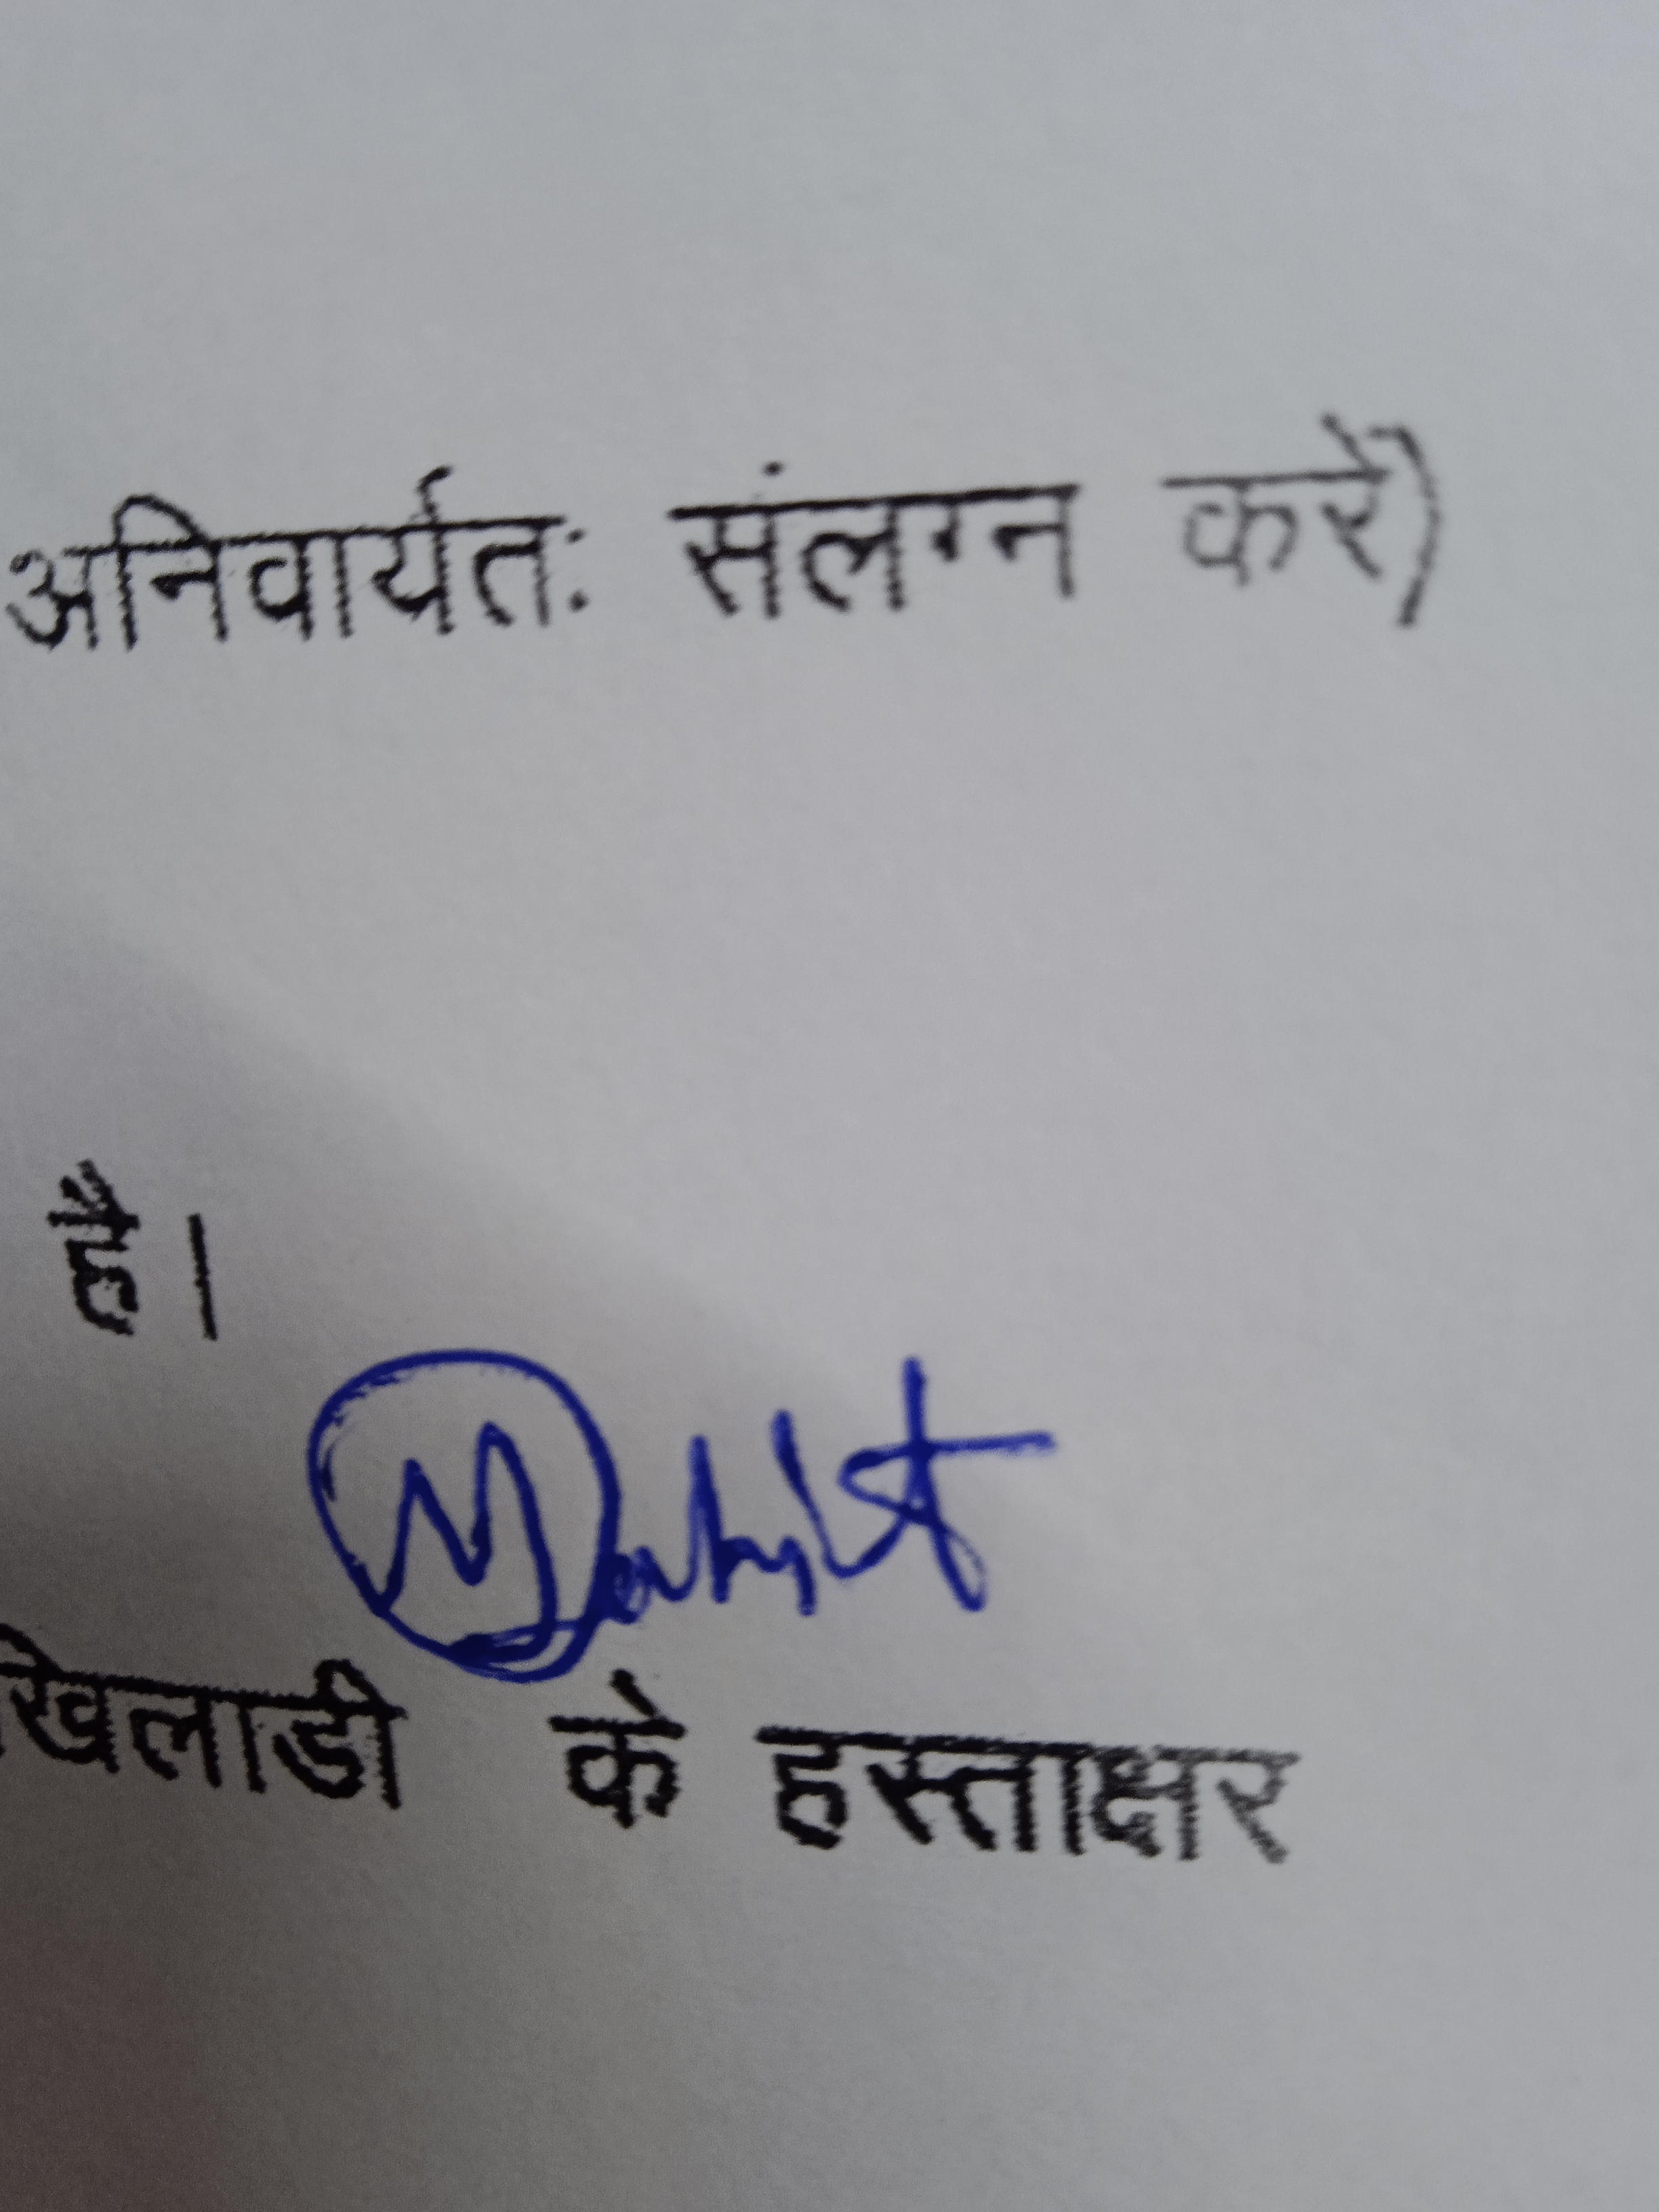 अनिवार्यतः संलग्न करें)
है।
खिलाडी के हस्ताक्षर